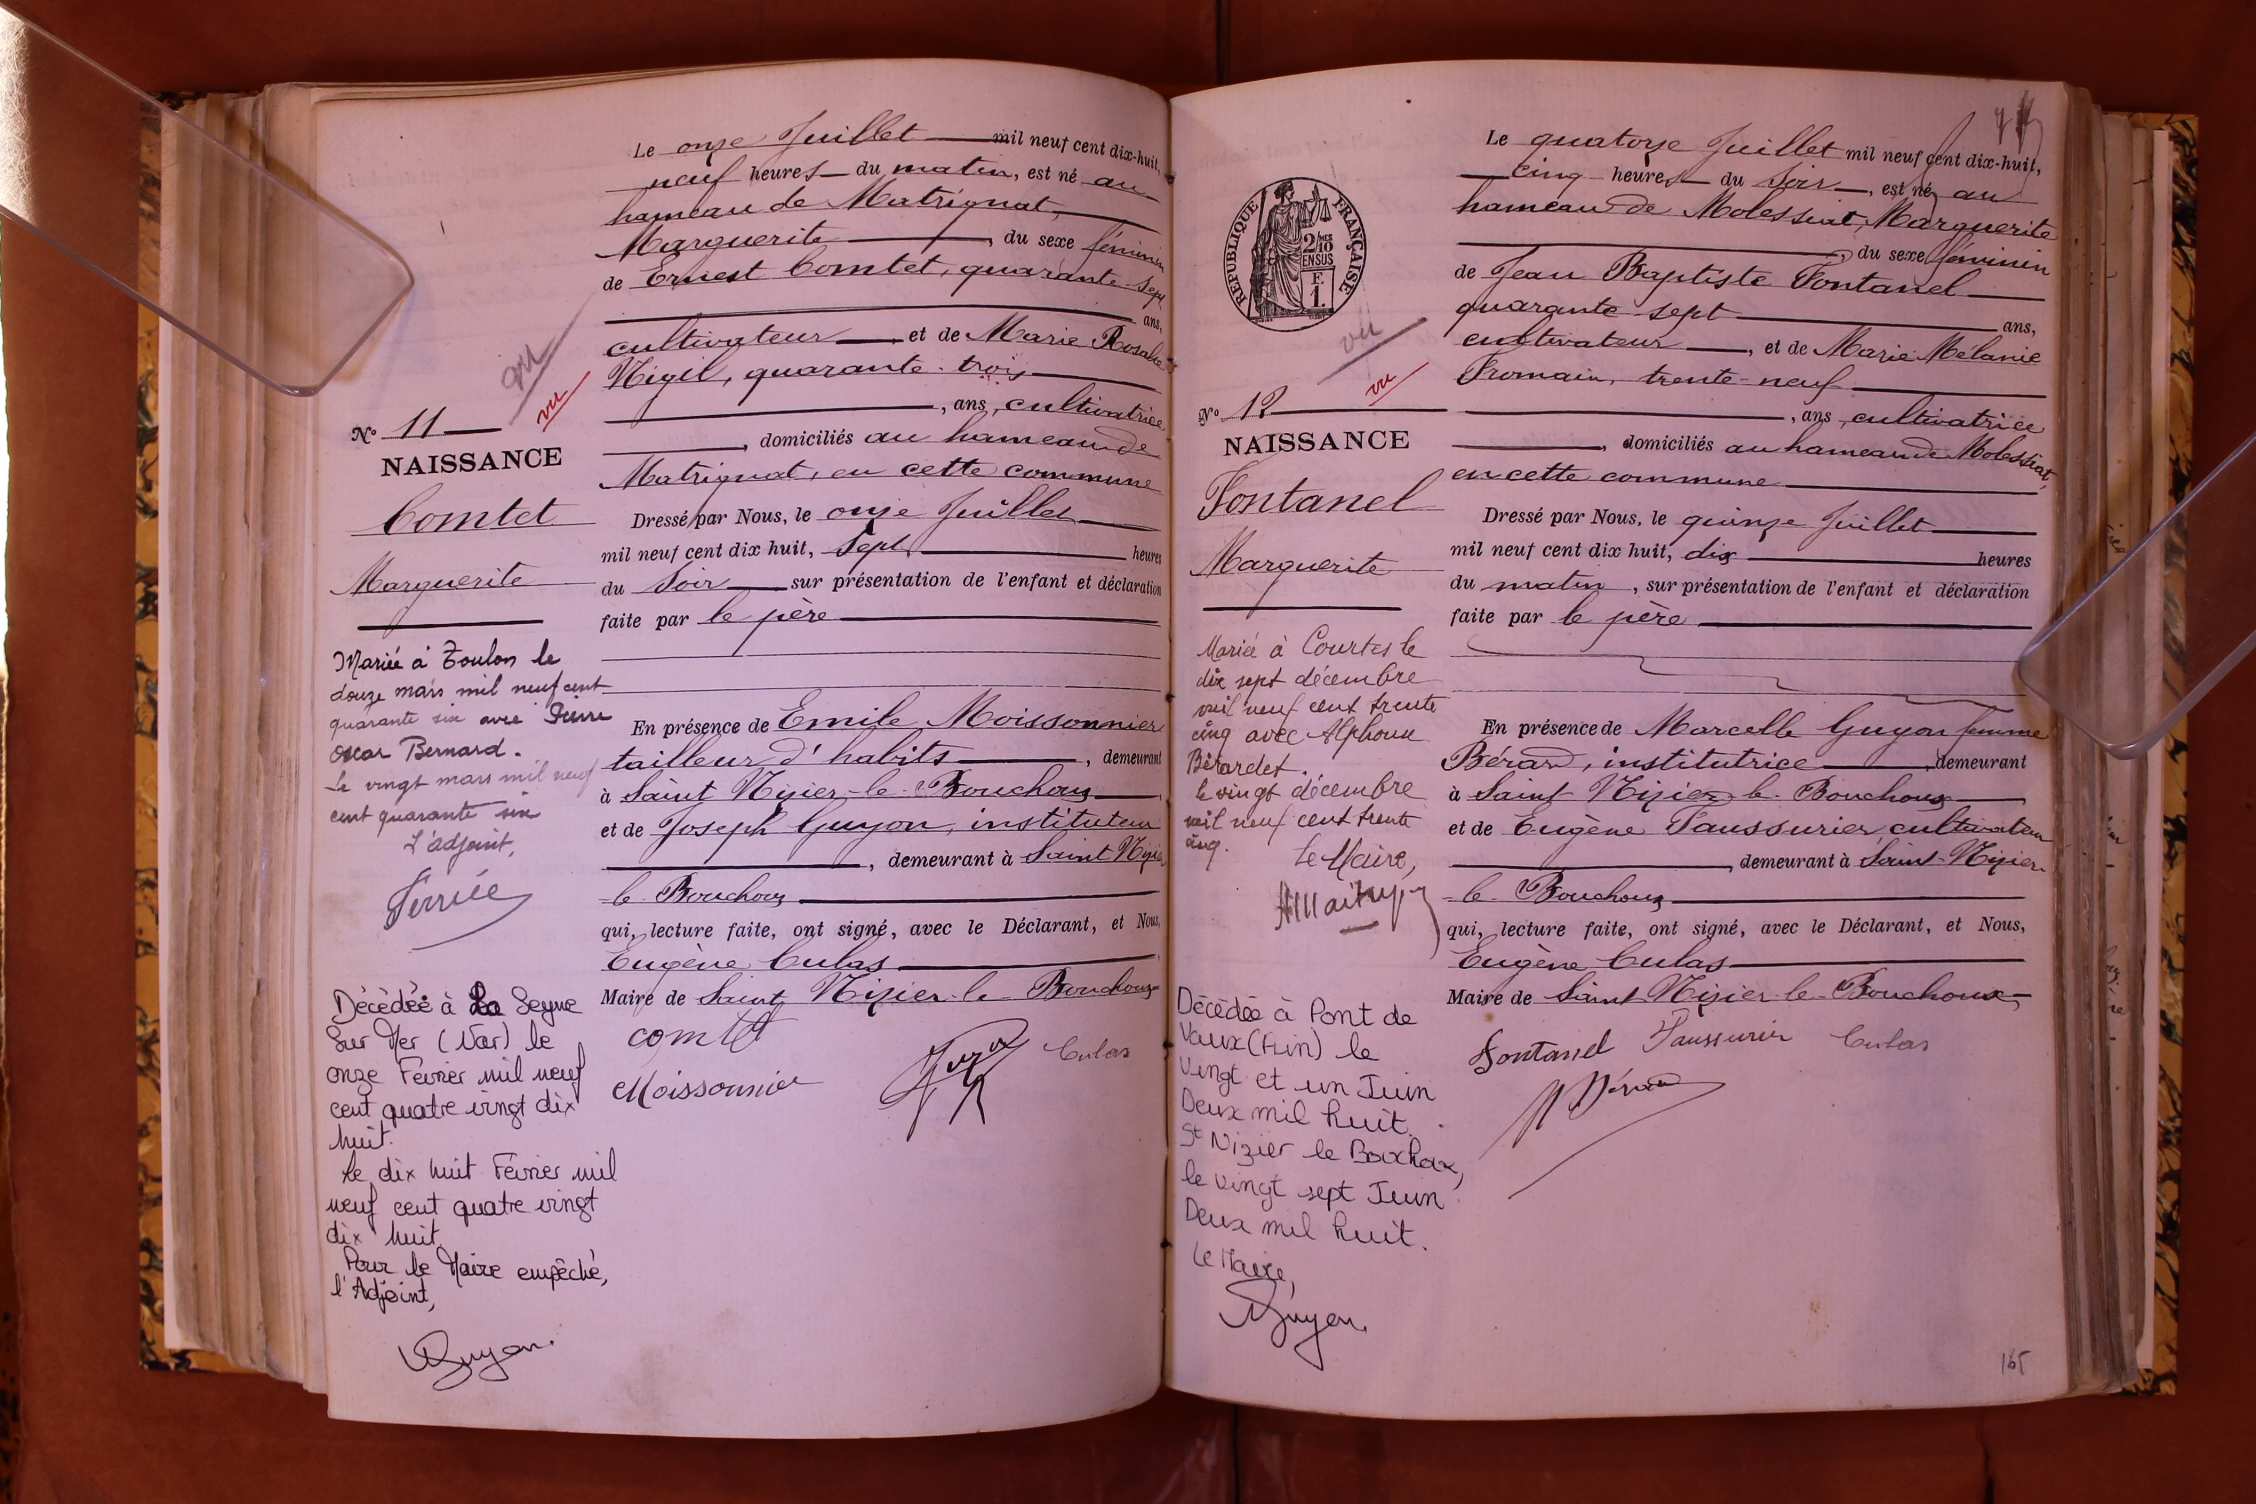 Le onze Juillet mil neuf cent dix-huit,
neuf heures du matin, est né au
hameau de Matrignat,
Marguerite, du sexe féminin
de Ernest Comtet, quarante-sept
ans,
cultivateur et de Marie Rosalie
Nigil, quarante-trois
, ans, cultivatrice
, domiciliés au hameau de
Matrignat, en cette commune
Dressé par Nous, le onze Juillet
mil neuf cent dix huit, sept heures
du soir sur présentation de l'enfant et déclaration
faite par le père
En présence de Emile Moissonnier
tailleur d'habits, demeurant
à Saint Nizier-le-Bouchoux
et de Joseph Guyon, instituteur
, demeurant à Saint Nizier
le Bouchoux
qui, lecture faite, ont signé, avec le Déclarant, et Nous,
Eugène Culas
Maire de Saint Nizier-le-Bouchoux
Comtet
Moissonnier
Culas
vu
vu
N° 11
NAISSANCE
Comtet
Marguerite
Mariée à Toulon le
douze mars mil neuf cent
quarante six avec Pierre
Oscar Bernard.
Le vingt mars mil neuf
cent quarante six
L'adjoint,
Décédée à La Seyne
Sur Mer (Var) le
onze Février mil neuf
cent quatre vingt dix
huit.
Le dix huit Février mil
neuf cent quatre vingt
dix huit.
Pour le Maire empêché,
l'Adjoint,
Guyon.
Le quatorze Juillet mil neuf cent dix-huit,
cinq heures du soir, est né au
hameau de Molessiat, Marguerite
, du sexe féminin
de Jean Baptiste Fontanel
quarante-sept ans,
cultivateur, et de Marie Mélanie
Promain, trente-neuf
, ans, cultivatrice
, domiciliés au hameau de Molessiat,
en cette commune
Dressé par Nous, le quinze Juillet
mil neuf cent dix huit, dix heures
du matin, sur présentation de l'enfant et déclaration
faite par le père
En présence de Marcelle Guyon femme
Bérard, institutrice, demeurant
à Saint Nizier-le-Bouchoux
et de Eugène Faussurier, cultivateur
, demeurant à Saint-Nizier-
le-Bouchoux
qui, lecture faite, ont signé, avec le Déclarant, et Nous,
Eugène Culas
Maire de Saint Nizier-le-Bouchoux
Fontanel Faussurier Culas
M Bérard
RÉPUBLIQUE FRANÇAISE
2/10
EN SUS
F.
1.
vu
vu
N° 12
NAISSANCE
Fontanel
Marguerite
Mariée à Courtes le
dix sept décembre
mil neuf cent trente
cinq avec Alphonse
Bérardet.
le vingt décembre
mil neuf cent trente
cinq.
Le Maire,
Décédée à Pont de
Vaux (Ain) le
vingt et un Juin
Deux mil huit.
St Nizier le Bouchoux,
le vingt sept Juin
Deux mil huit.
Le Maire,
Guyon.
165